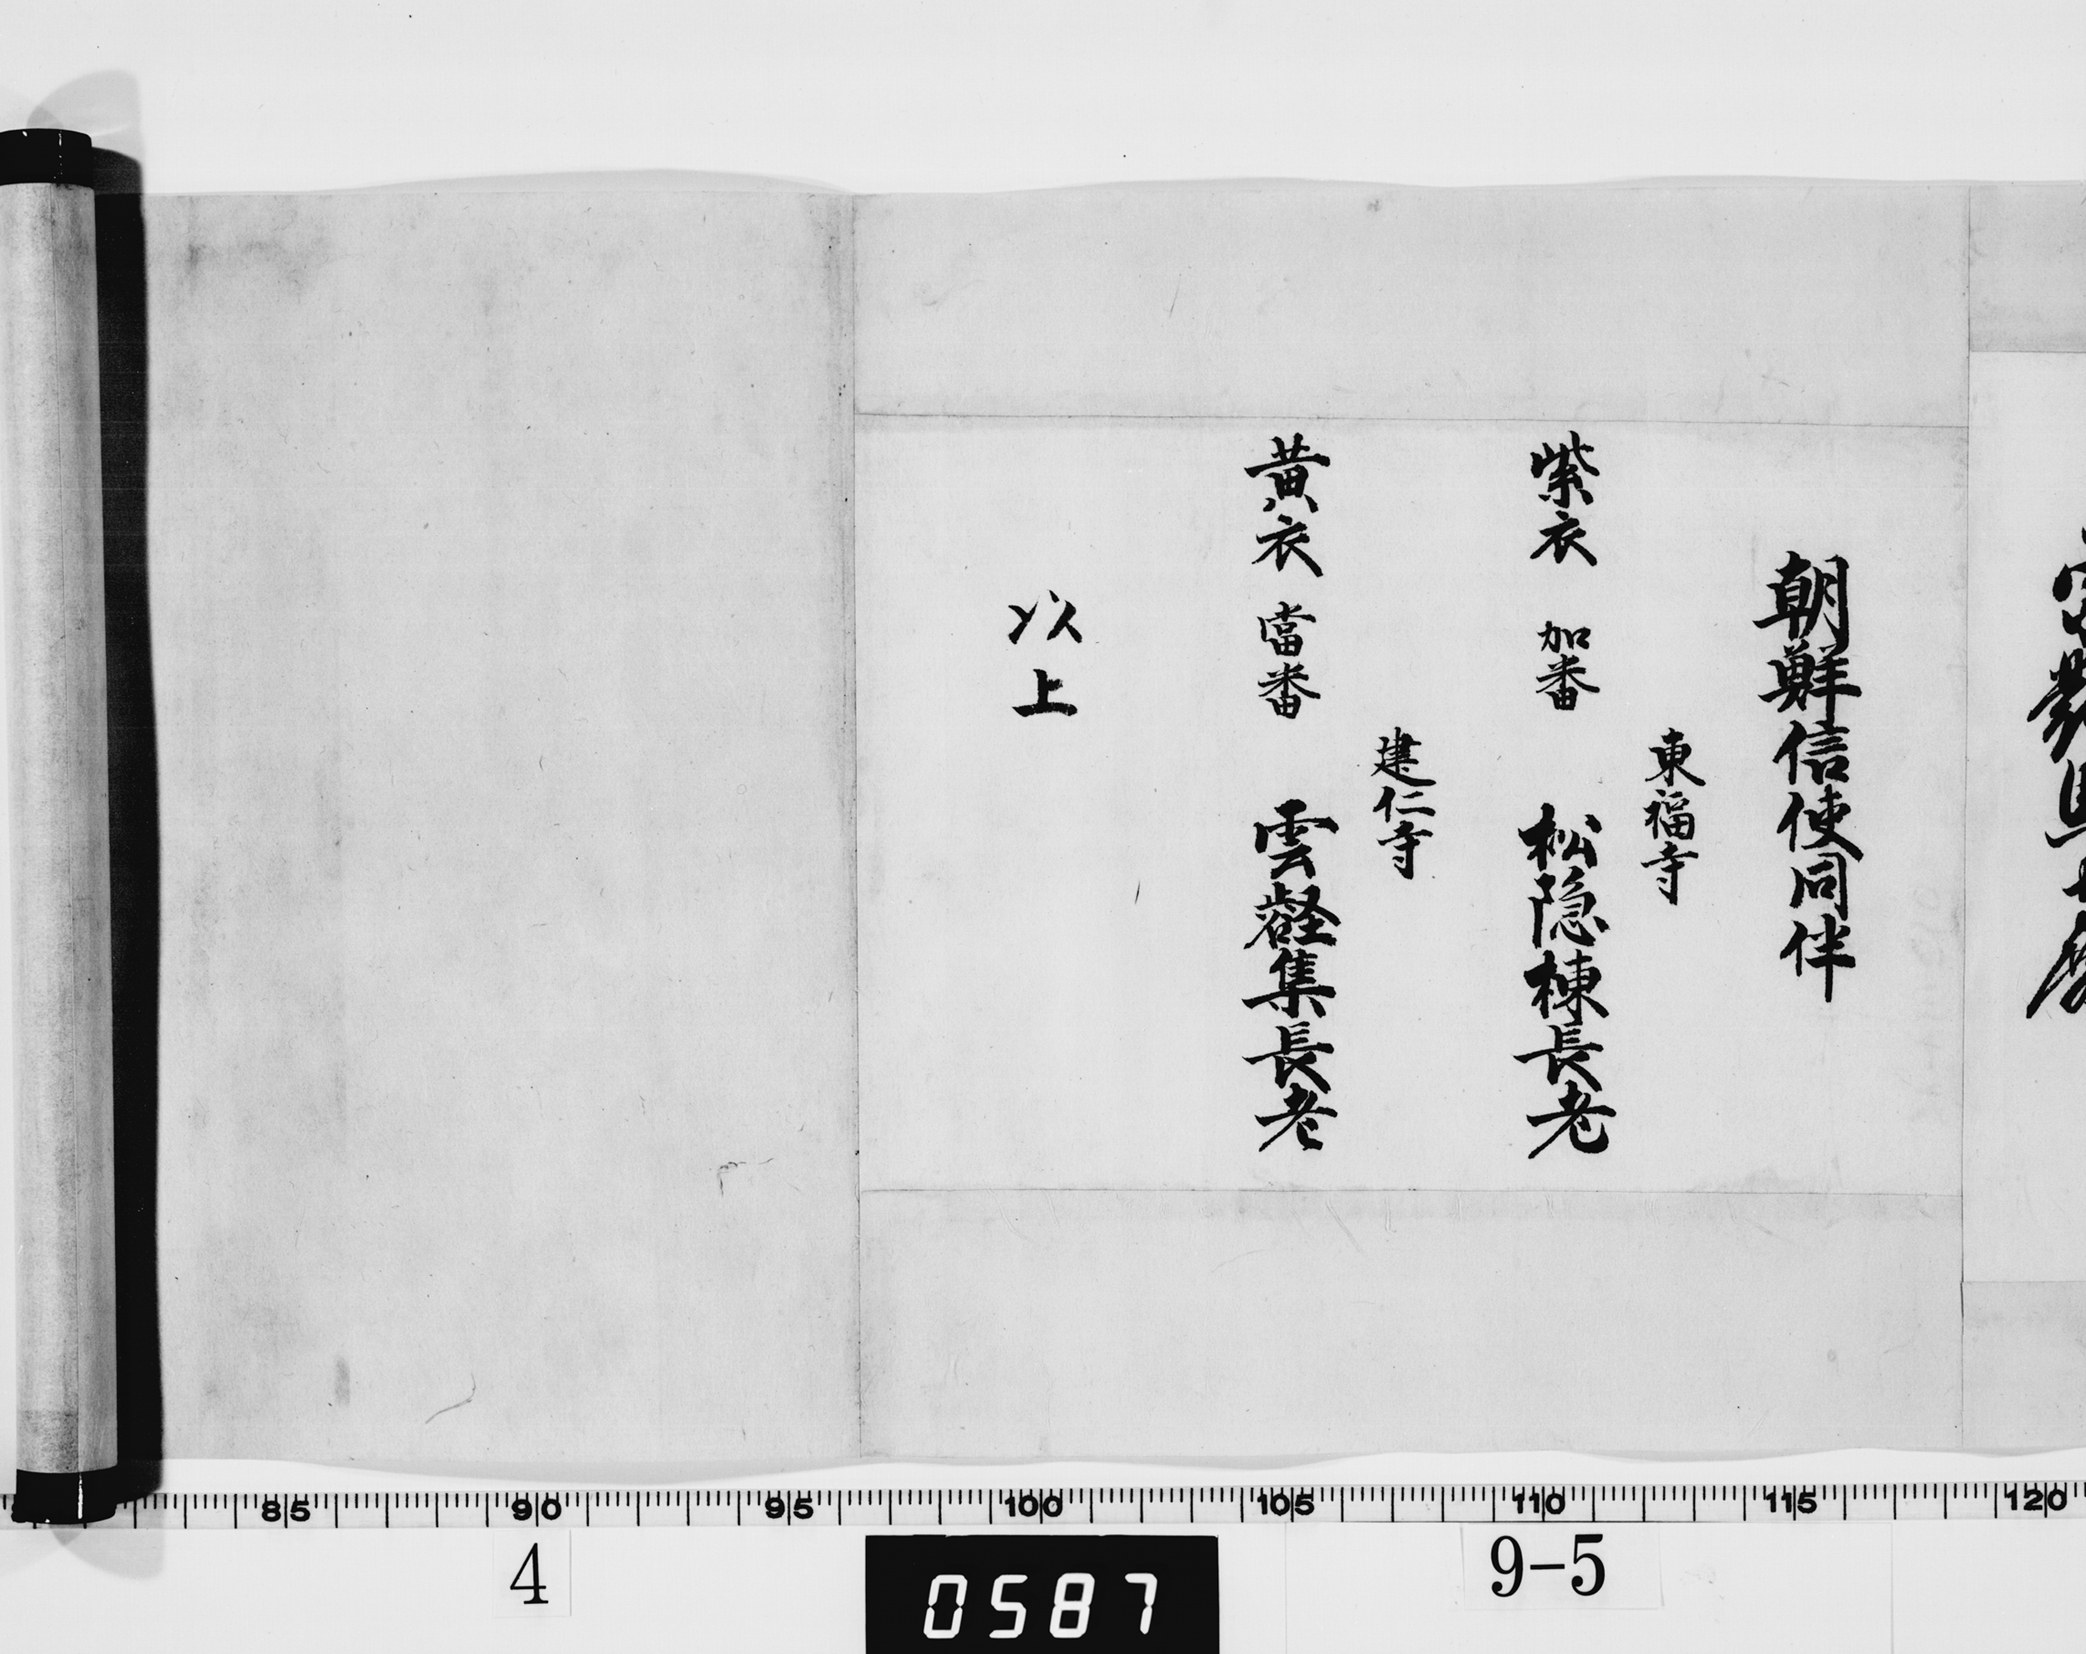 朝鮮信使同伴
東福寺
紫衣 加番 松隠棟長老
建仁寺
黄衣 當番 雲壑集長老
以上
85 90 95 100 105 110 115 120
4
0587
9-5